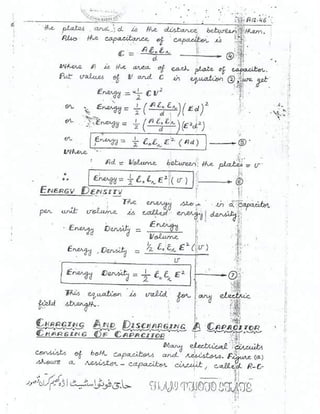 the plates and d is the distance between them.
Also the capacitance of capacitor is
C = Aε₀εᵣ / d → ④
Where A is the area of each plate of capacitor.
Put values of V and C in equation ③ we get
Energy = 1/2 C V²
or Energy = 1/2 (Aε₀εᵣ / d) (Ed)²
or Energy = 1/2 (Aε₀εᵣ / d) (E²d²)
or Energy = 1/2 ε₀εᵣ E² (Ad) → ⑤
Where
Ad = Volume between the plates = v
∴ Energy = 1/2 ε₀εᵣ E² (v) → ⑥
ENERGY DENSITY
The energy in a capacitor
per unit volume is called energy density.
Energy Density = Energy / Volume
Energy Density = 1/2 ε₀εᵣ E² (v) / v
Energy Density = 1/2 ε₀εᵣ E² → ⑦
This equation is valid for any electric
field strength.
CHARGING AND DISCHARGING A CAPACITOR
CHARGING OF CAPACITOR
Many electrical circuits
consists of both capacitors and resistors. Figure (a)
shows a resistor - capacitor circuit, called R-C-